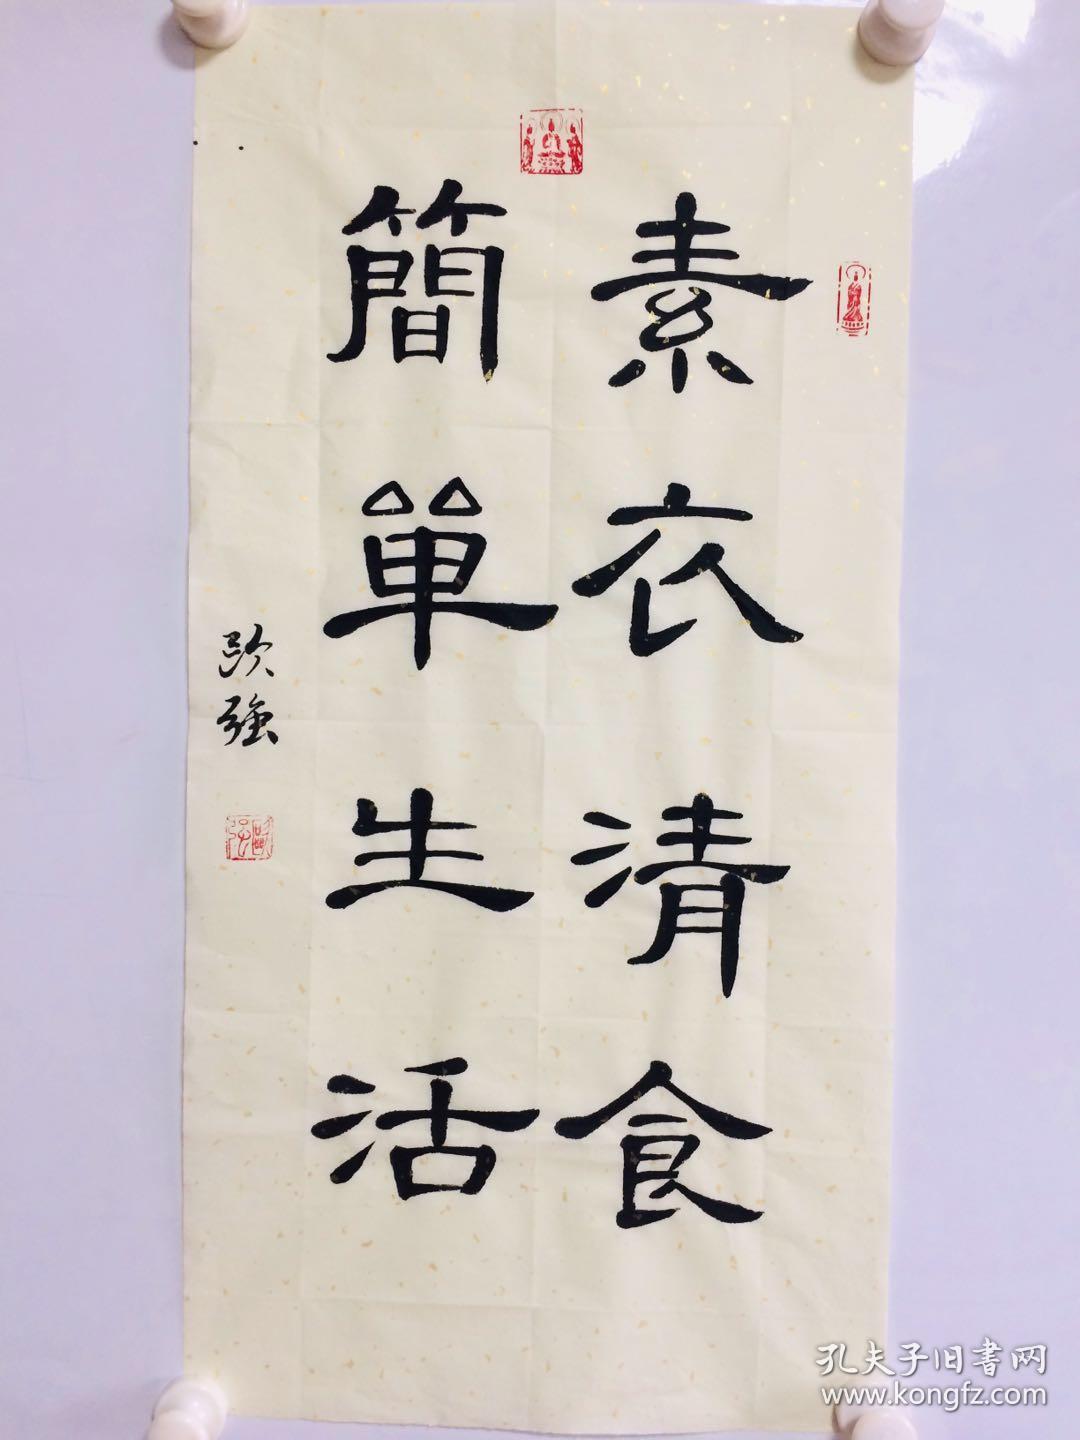 素衣清食
簡單生活
欧强
孔夫子旧書网
www.kongfz.com